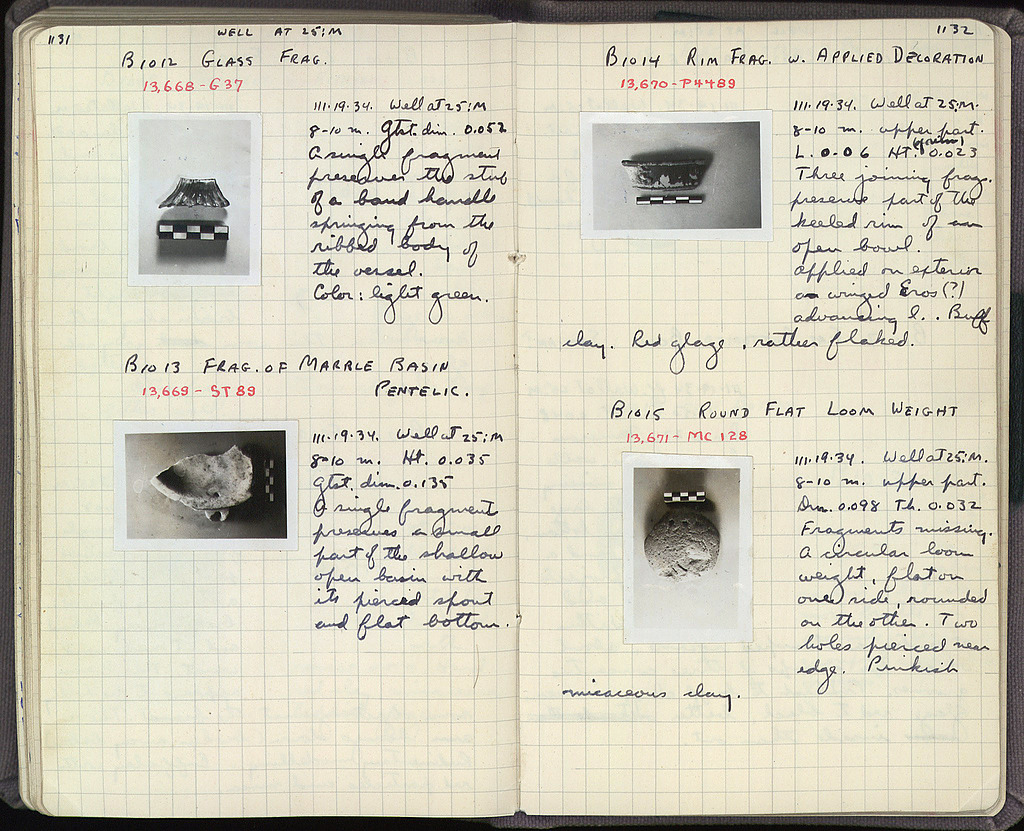 1131
WELL AT 25:M
B1012 GLASS FRAG.
13,668-G37
III.19.34. Well at 25:M
8-10 m. Gtst. dim. 0.052
A single fragment
preserves the stub
of a band handle
springing from the
ribbed body of
the vessel.
Color: light green.
B1013 FRAG. OF MARBLE BASIN
13,669-ST89
PENTELIC.
III.19.34. Well at 25:M
8-10 m. Ht. 0.035
Gtst. dim. 0.135
A single fragment
preserves a small
part of the shallow
open basin with
its pierced spout
and flat bottom.
1132
B1014 RIM FRAG. W. APPLIED DECORATION
13,670-P4489
III.19.34. Well at 25:M.
8-10 m. upper part.
L. 0.06 Ht. (of rim) 0.023
Three joining frag.
preserve part of the
keeled rim of an
open bowl.
applied on exterior
a winged Eros(?)
advancing l.. Buff
clay. Red glaze, rather flaked.
B1015 ROUND FLAT LOOM WEIGHT
13,671-MC 128
III.19.34. Well at 25:M.
8-10 m. upper part.
Dm. 0.098 Th. 0.032
Fragments missing.
A circular loom
weight, flat on
one side, rounded
on the other. Two
holes pierced near
edge. Pinkish
micaceous clay.